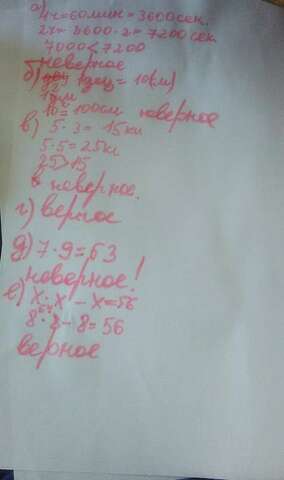 а) 1ч = 60мин = 3600 сек.
2ч = 3600 · 2 = 7200 сек
7000 < 7200
неверное
б) 1дец = 10(м)
1дм
10 = 100см неверное
в) 5 · 3 = 15кг
5 · 5 = 25кг
25 > 15
неверное.
г) верное
д) 7 · 9 = 63
неверное!
е) x · x - x = 56
8 · 8 - 8 = 56
верное